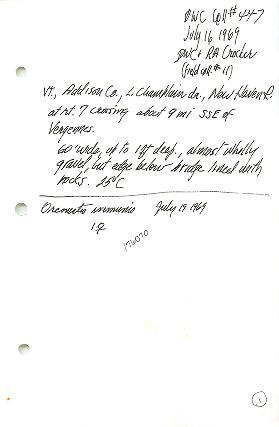 DWC Coll # 447
July 16 1969
DWC & RA Crocker
(field coll. # 11)
Vt., Addison Co., L. Champlain dr., New Haven R.
at rt. 7 crossing about 9 mi SSE of
Vergennes.
60' wide, up to 1½' deep, almost wholly
gravel, but edge below bridge lined with
rocks. 25°C
Orconectes immunis July 19 1969
1♀
176070
1